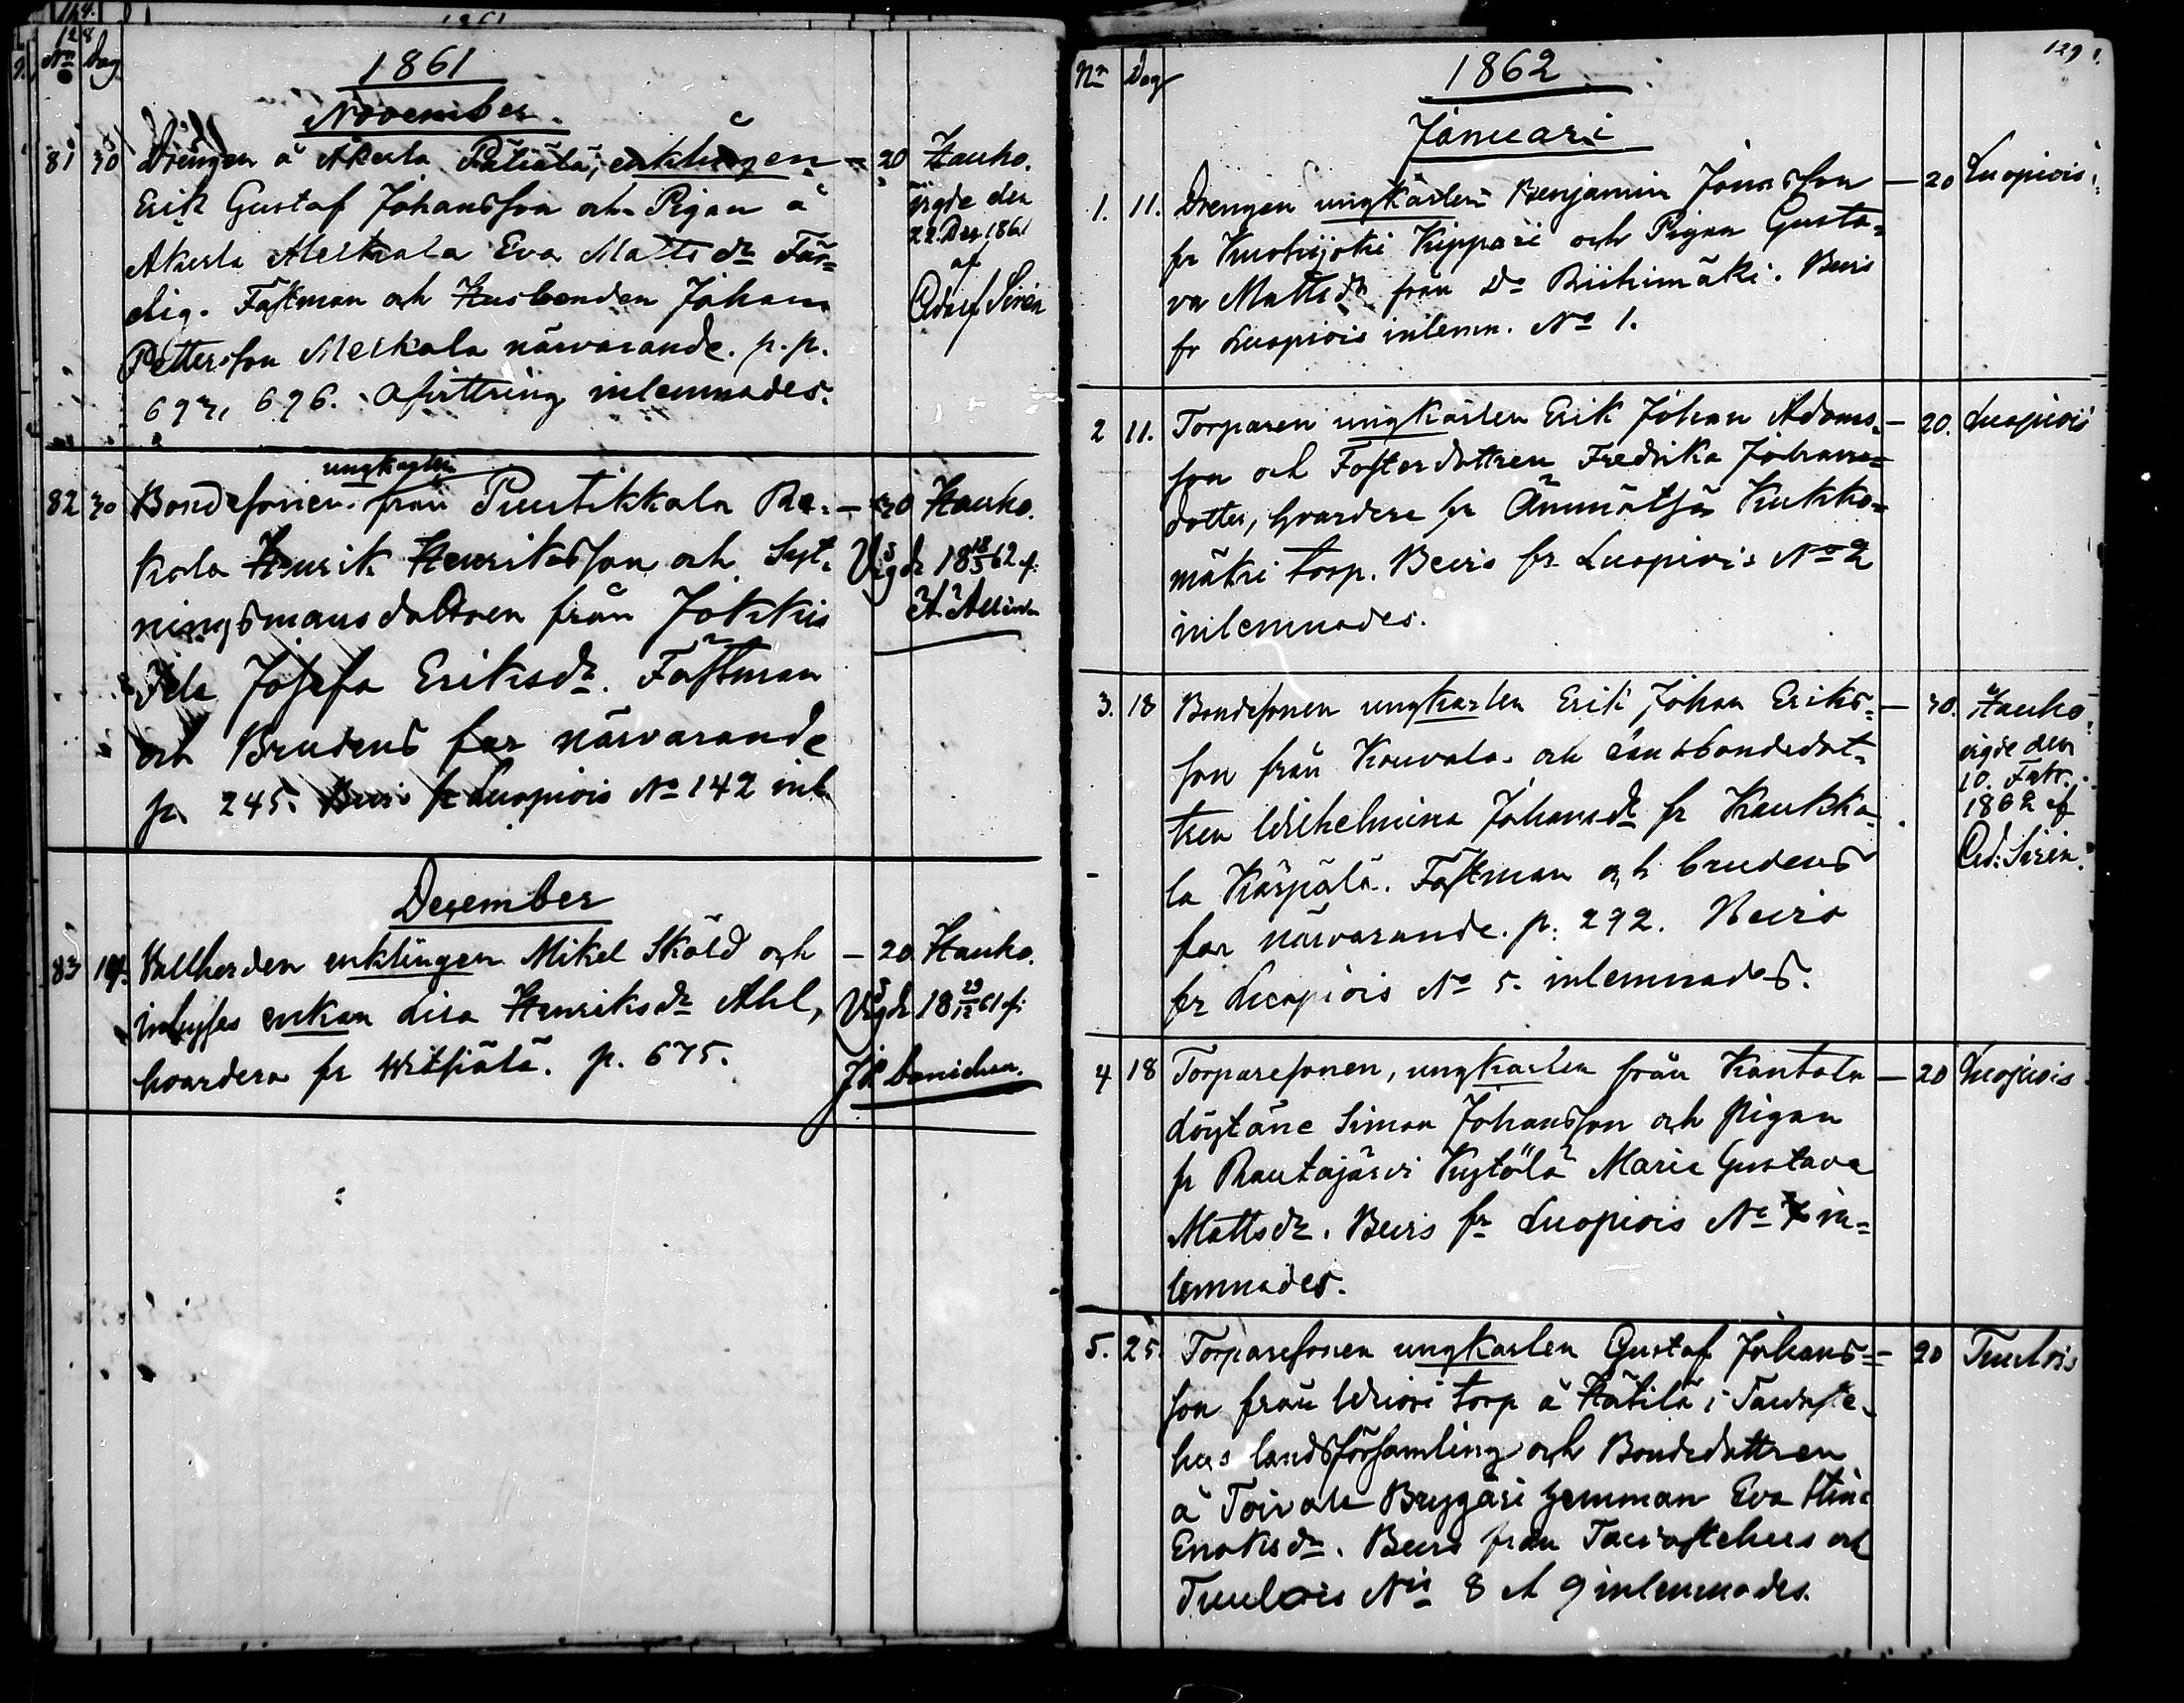 128
No Dag
1861
November.
81 30 Drengen å Åkerla Pätiälä, enklingen — 20 Hauho.
Erik Gustaf Johansson och Pigan å
Åkerla Merkala Eva Mattsdr Fär=
dig. Fästman och Husbonden Johan
Pettersson Merkala närvarande. p.p.
696. Afvittring inlemnades.
vigde den
22 Dec 1861
af
Adolf Sirén
ungkarlen
82 30 Bondesonen från Puutikkala Re- — 30 Hauho.
kola Henrik Henriksson och Syt-
ningsmansdottren från Jokkis
Ida Josefa Eriksdr. Fästman
och Brudens far närvarande
p. 245. Bevis fr Luopiois No 142 inl.
Vigde 18 18/3 62 af
December
83 14. Vallherden enklingen Mikel Sköld och — 20 Hauho.
inhyses enkan Lisa Henriksdr Ahl,
hvardera fr Witsiälä. p. 675.
Vigde 18 29/12 61 af
129
No Dag
1862
Januari
1. 11. Drengen ungkarlen Benjamin Jonasson — 20 Luopiois
fr Kuohijoki Kippari och Pigan Gusta=
va Mattsdr från Do Riihimäki. Bevis
fr Luopiois inlemn. No 1.
2 11. Torparen ungkarlen Erik Johan Adams- — 20. Luopiois
son och Fosterdottren Fredrika Johans=
dotter, hvardera fr Ämmätsä Kukko=
mäki torp. Bevis fr Luopiois No 2
inlemnades.
3. 18 Bondesonen ungkarlen Erik Johan Eriks- — 30. Hauho
son från Kouvala och Landbondedot-
tren Wilhelmina Johansdr fr Kaukka-
la Kärpälä. Fästman och brudens
far närvarande. p. 292. Bevis
fr Luopiois No 5. inlemnades.
vigde den
10. Febr.
1862 af
Ad: Sirén.
4 18 Torparesonen, ungkarlen från Kantola — 20 Luopiois
Löytäne Simon Johansson och Pigan
fr Rautajärvi Kytölä Maria Gustava
Mattsdr. Bevis fr Luopiois No 7 in=
lemnades.
5. 25. Torparesonen ungkarlen Gustaf Johans= — 20 Tuulois
son från Wuori torp å Hätilä i Tavaste-
hus landsförsamling och Bondedottren
å Toivala Bryggäri hemman Eva Stina
Enoksdr. Bevis från Tavastehus och
Tuulois Nis 8 och 9 inlemnades.